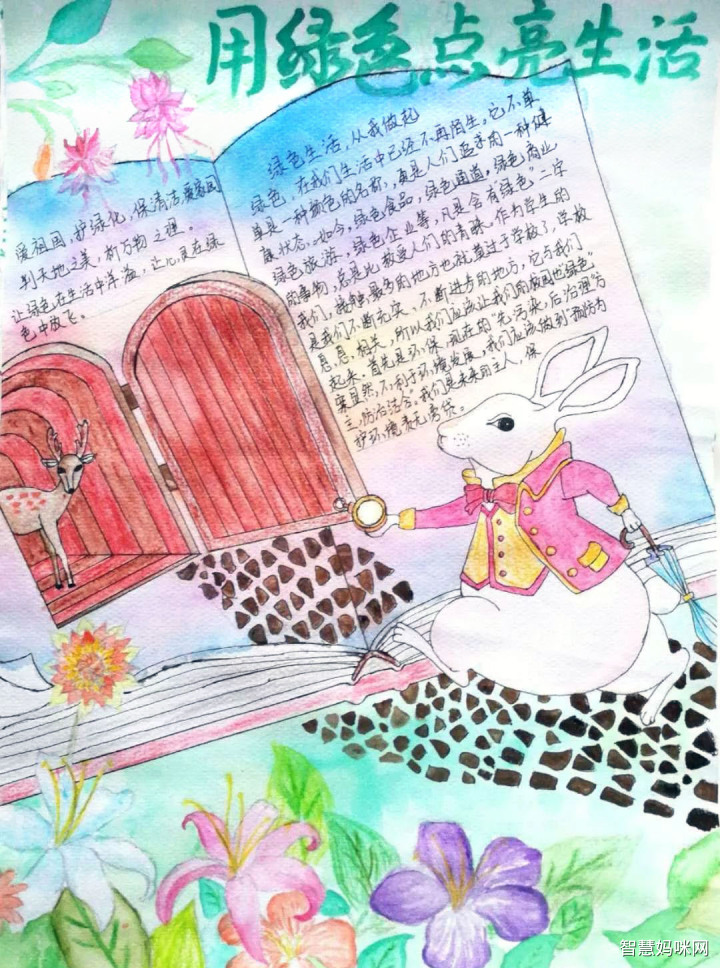 用绿色点亮生活
爱祖国,护绿化,保清洁爱家园
判天地之美,析万物之理。
让绿色在生活中洋溢,让心灵在绿
色中放飞。
绿色生活,从我做起
绿色,在我们生活中已经不再陌生,它不单
单是一种颜色的名称,真是人们追寻的一种健
康状态。如今,绿色食品,绿色通道,绿色商业,
绿色旅游,绿色企业等,凡是含有"绿色"二字
的事物,总是比较受人们的青睐。作为学生的
我们,接触最多的地方也就莫过于学校了,学校
是我们不断充实、不断进步的地方,它与我们
息息相关,所以我们应该让我们的校园也"绿色"
起来。首先是环保,现在的"先污染,后治理"方
案显然不利于环境发展,我们应该做到"预防为
主,防治结合。我们是未来的主人,保
护环境责无旁贷。
智慧妈咪网